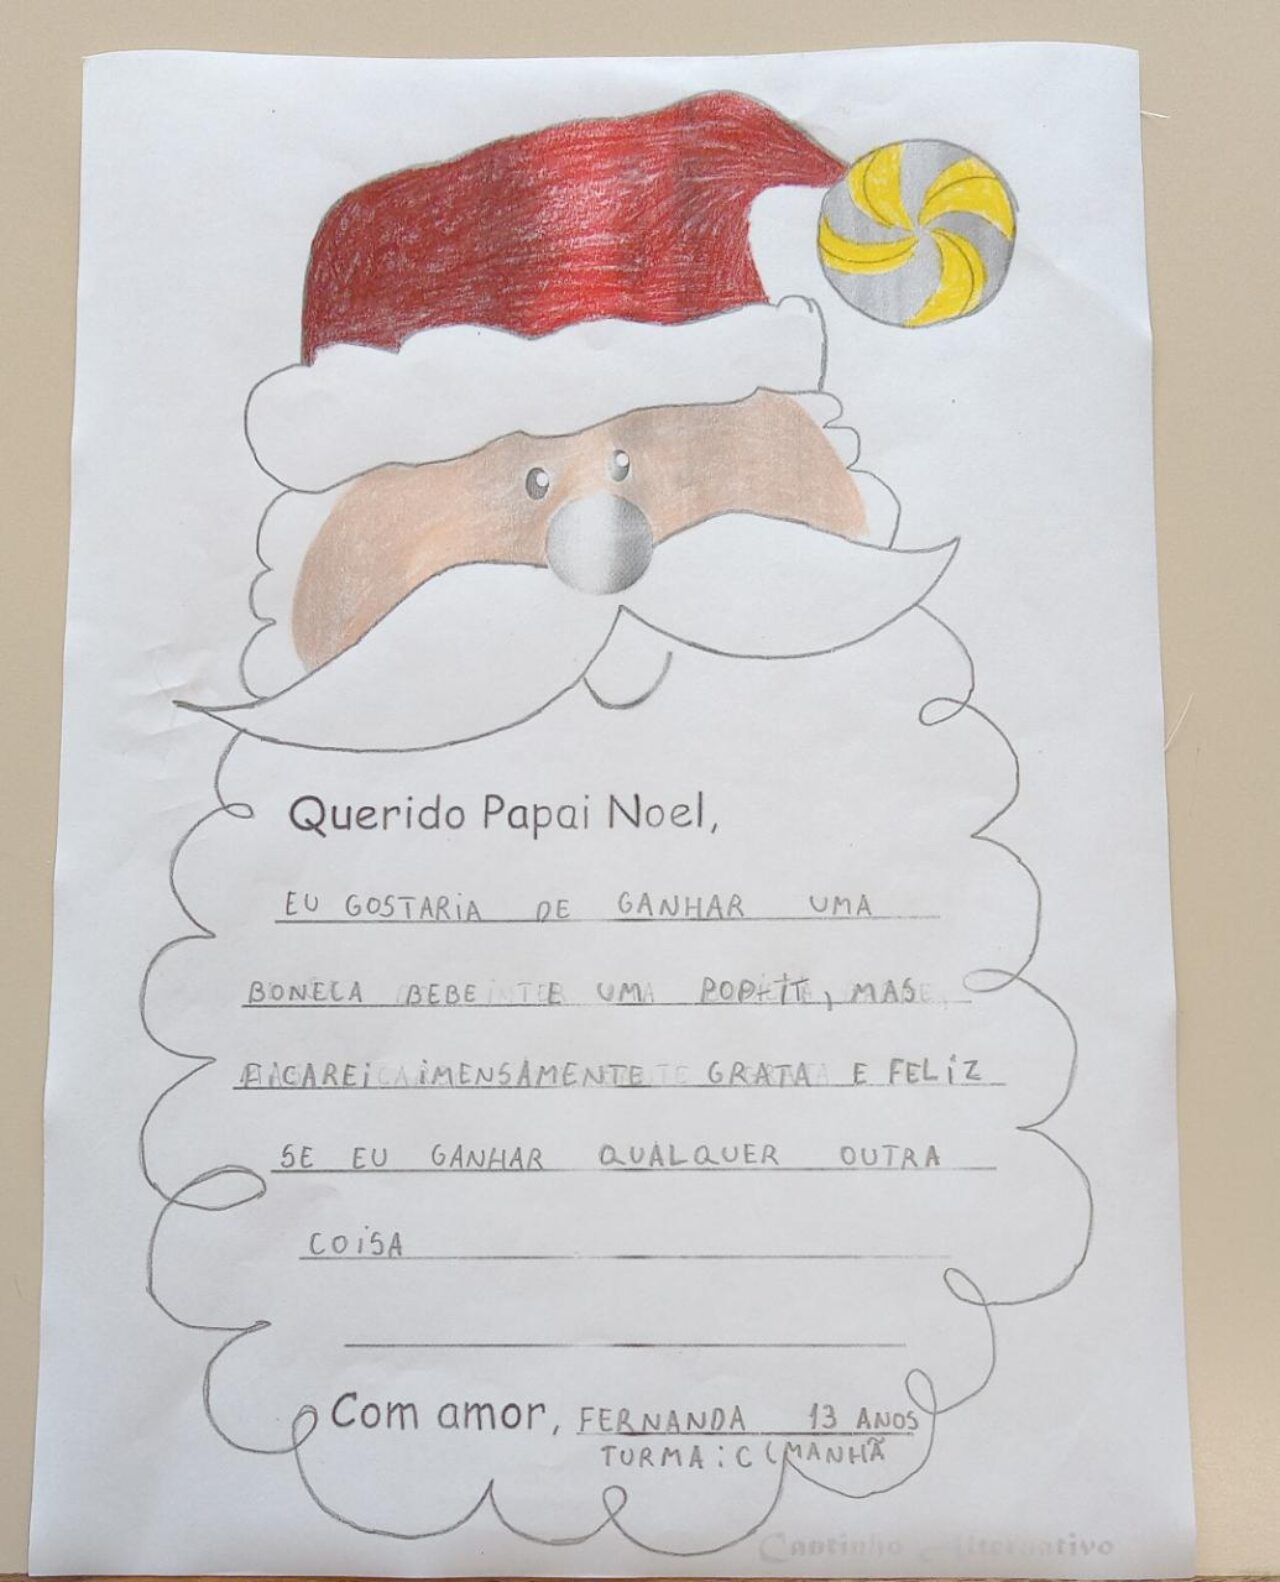 Querido Papai Noel,
EU GOSTARiA DE GANHAR UMA
BONECA BEBE E UM POPiTT, MAS
FiCAREi iMENSAMENTE GRATA E FELiZ
SE EU GANHAR QUALQUER OUTRA
COiSA
Com amor, FERNANDA 13 ANOS
TURMA: C (MANHÃ
Cantinho Alternativo